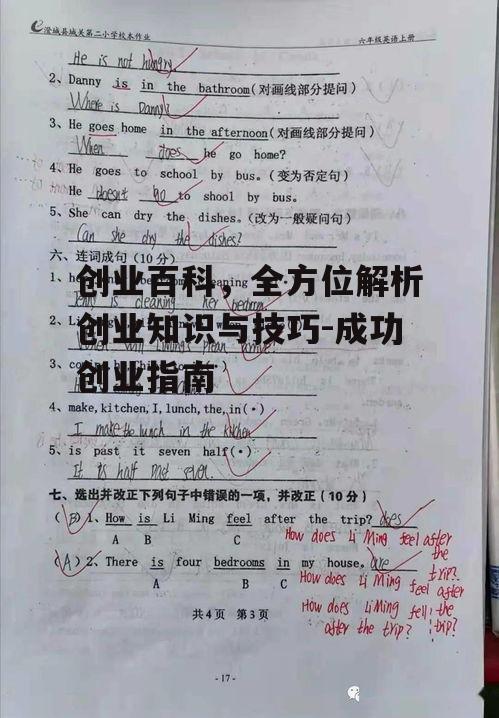 澄城县城关第二小学校本作业 六年级英语上册
He is not hungry.
2、Danny is in the bathroom(对画线部分提问)
Where is Danny?
3、He goes home in the afternoon(对画线部分提问)
When does he go home?
4、He goes to school by bus.(变为否定句)
He doesn't go to shool by bus.
5、She can dry the dishes.(改为一般疑问句)
Can she dry the dishes?
六、连词成句(10分)
创业百科，全方位解析
创业知识与技巧-成功
创业指南
is cleaning her bedroom
4、make,kitchen,I,lunch,the,in(·)
I make the lunch in the kitchen
5、is past it seven half(·)
It is half past seven.
七、选出并改正下列句子中错误的一项，并改正(10分)
(B)1、How is Li Ming feel after the trip? does
A B C
How does Li Ming feel after the trip?
(A)2、There is four bedrooms in my house. are
A B C
How does Li Ming feel after the trip?
How does Li Ming fell
after the trip?
共4页 第3页
- 17 -